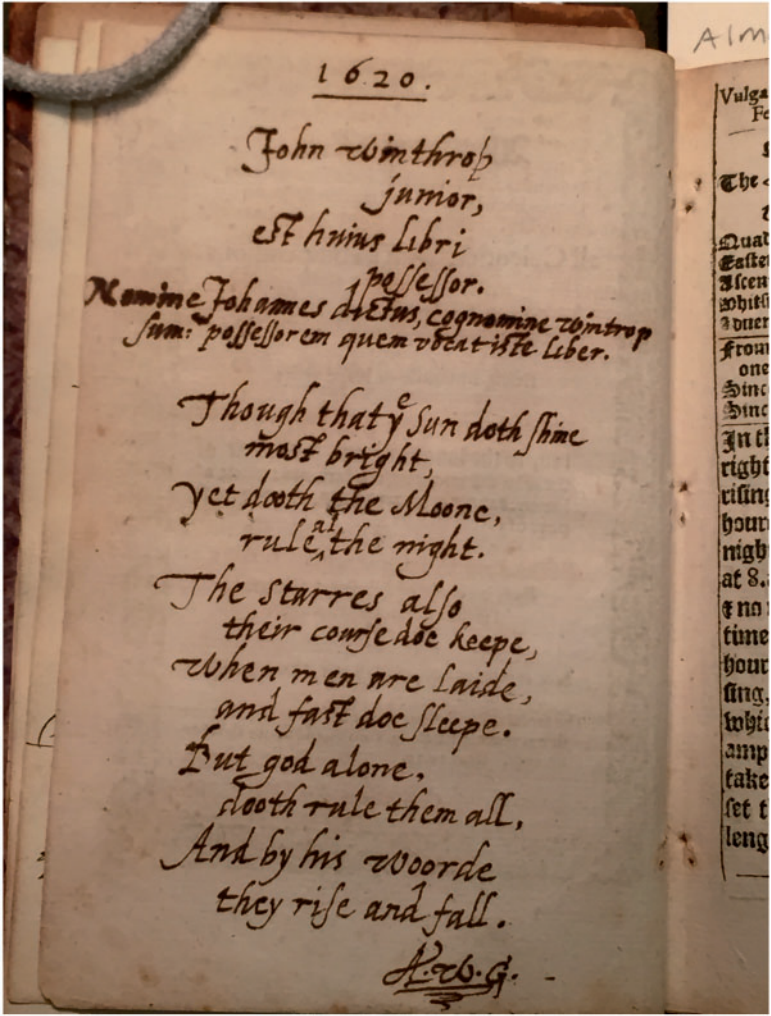 1620.
John Winthrop
junior,
est huius libri
possessor.
Nomine Johannes dictus, cognomine Wintrop
sum: possessorem quem vocat iste liber.
Though that yͤ Sun doth shine
most bright,
yet dooth the Moone,
rule al the night.
The Starres also
their course doe keepe,
When men are laide,
and fast doe sleepe.
But god alone,
dooth rule them all,
And by his Woorde
they rise and fall.
A.W.G.
Alm
Vulga
Fe
The
Quad
Easte
Ascen
Whits
Aduen
From
one
Sinc
Sinc
In th
right
rising
houre
nigh
at 8.
& no
time
hour
sing,
whic
amp
take
set t
leng